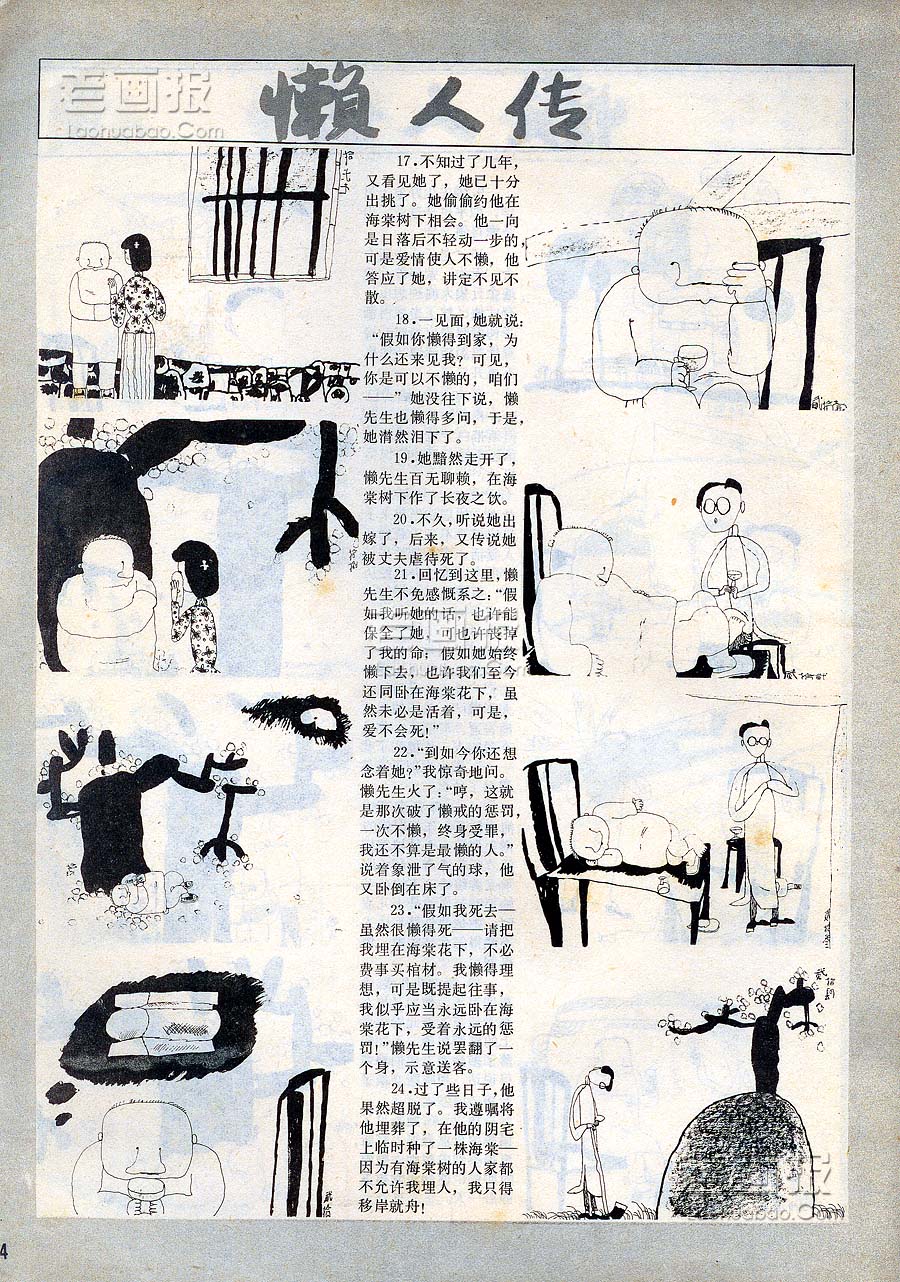 老画报
Laohuabao.Com
懒人传
17.不知过了几年，
又看见她了，她已十分
出挑了。她偷偷约他在
海棠树下相会。他一向
是日落后不轻动一步的，
可是爱情使人不懒，他
答应了她，讲定不见不
散。
18.一见面，她就说：
“假如你懒得到家，为
什么还来见我？可见，
你是可以不懒的，咱们
——”她没往下说，懒
先生也懒得多问，于是，
她潸然泪下了。
19.她黯然走开了，
懒先生百无聊赖，在海
棠树下作了长夜之饮。
20.不久，听说她出
嫁了，后来，又传说她
被丈夫虐待死了。
21.回忆到这里，懒
先生不免感慨系之：“假
如我听她的话，也许能
保全了她，可也许丧掉
了我的命；假如她始终
懒下去，也许我们至今
还同卧在海棠花下，虽
然未必是活着，可是，
爱不会死！”
22.“到如今你还想
念着她？”我惊奇地问。
懒先生火了：“哼，这就
是那次破了懒戒的惩罚，
一次不懒，终身受罪，
我还不算是最懒的人。”
说着象泄了气的球，他
又卧倒在床了。
23.“假如我死去—
虽然很懒得死——请把
我埋在海棠花下，不必
费事买棺材。我懒得理
想，可是既提起往事，
我似乎应当永远卧在海
棠花下，受着永远的惩
罚！”懒先生说罢翻了一
个身，示意送客。
24.过了些日子，他
果然超脱了。我遵嘱将
他埋葬了，在他的阴宅
上临时种了一株海棠—
因为有海棠树的人家都
不允许我埋人，我只得
移岸就舟！
贰拾
贰拾肆
老画报
Laohuabao.Com
4